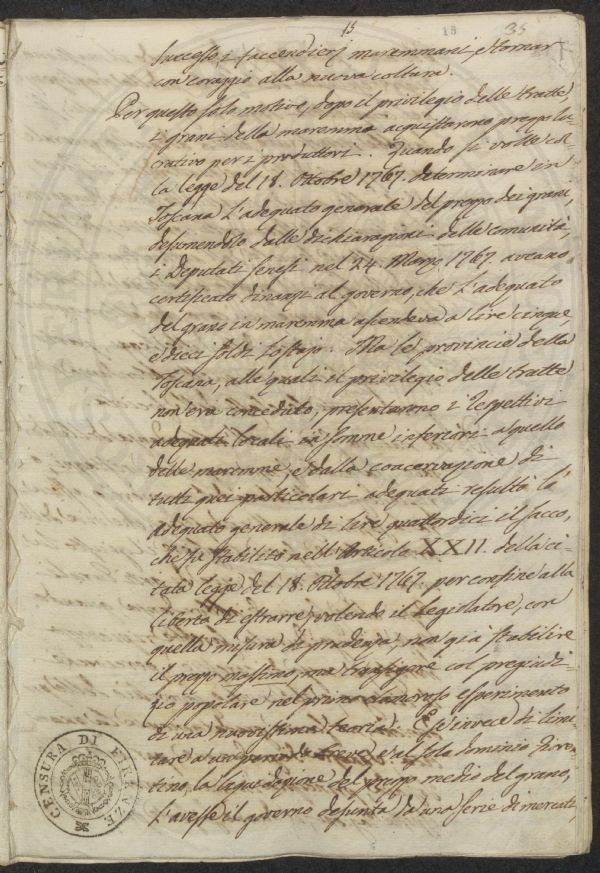 15 18 35
successe i faccendieri maremmani, e tornar
con coraggio alla nuova coltura.
Per questo solo motivo, dopo il privilegio delle tratte
i grani della maremma acquistarono prezzo lu-
crativo per i produttori. Quando si volle col-
la legge del 18. Ottobre 1767. determinare in
Toscana l'adeguato generale del prezzo dei grani,
desumendolo dalle dichiarazioni delle comunità,
i Deputati senesi nel 24. Marzo 1767. aveano
certificato dinanzi al governo, che l'adeguato
del grano in maremma ascendeva a lire cinque,
e dieci soldi lo stajo. Ma le provincie della
Toscana, alle quali il privilegio delle tratte
non era conceduto, presentarono i respettivi
adeguati locali in somme inferiori a quello
delle maremme, e dalla coacervazione di
tutti quei particolari adeguati resultò l'a-
adeguato generale di lire quattordici il sacco,
che fu stabilito nell'Articolo XXII. della ci-
tata legge del 18. Ottobre 1767. per confine alla
libertà di estrarre, volendo il Legislatore, con
quella misura di prudenza, non già stabilire
il prezzo massimo, ma transigere col pregiudi-
zio popolare nel primo clamoroso esperimento
di una nuovissima teoria. Se invece di limi-
tare a un periodo breve, e al solo dominio fioren-
tino, la liquidazione del prezzo medio del grano,
l'avesse il governo desunta da una serie di mercati,
CENSURA DI FIRENZE